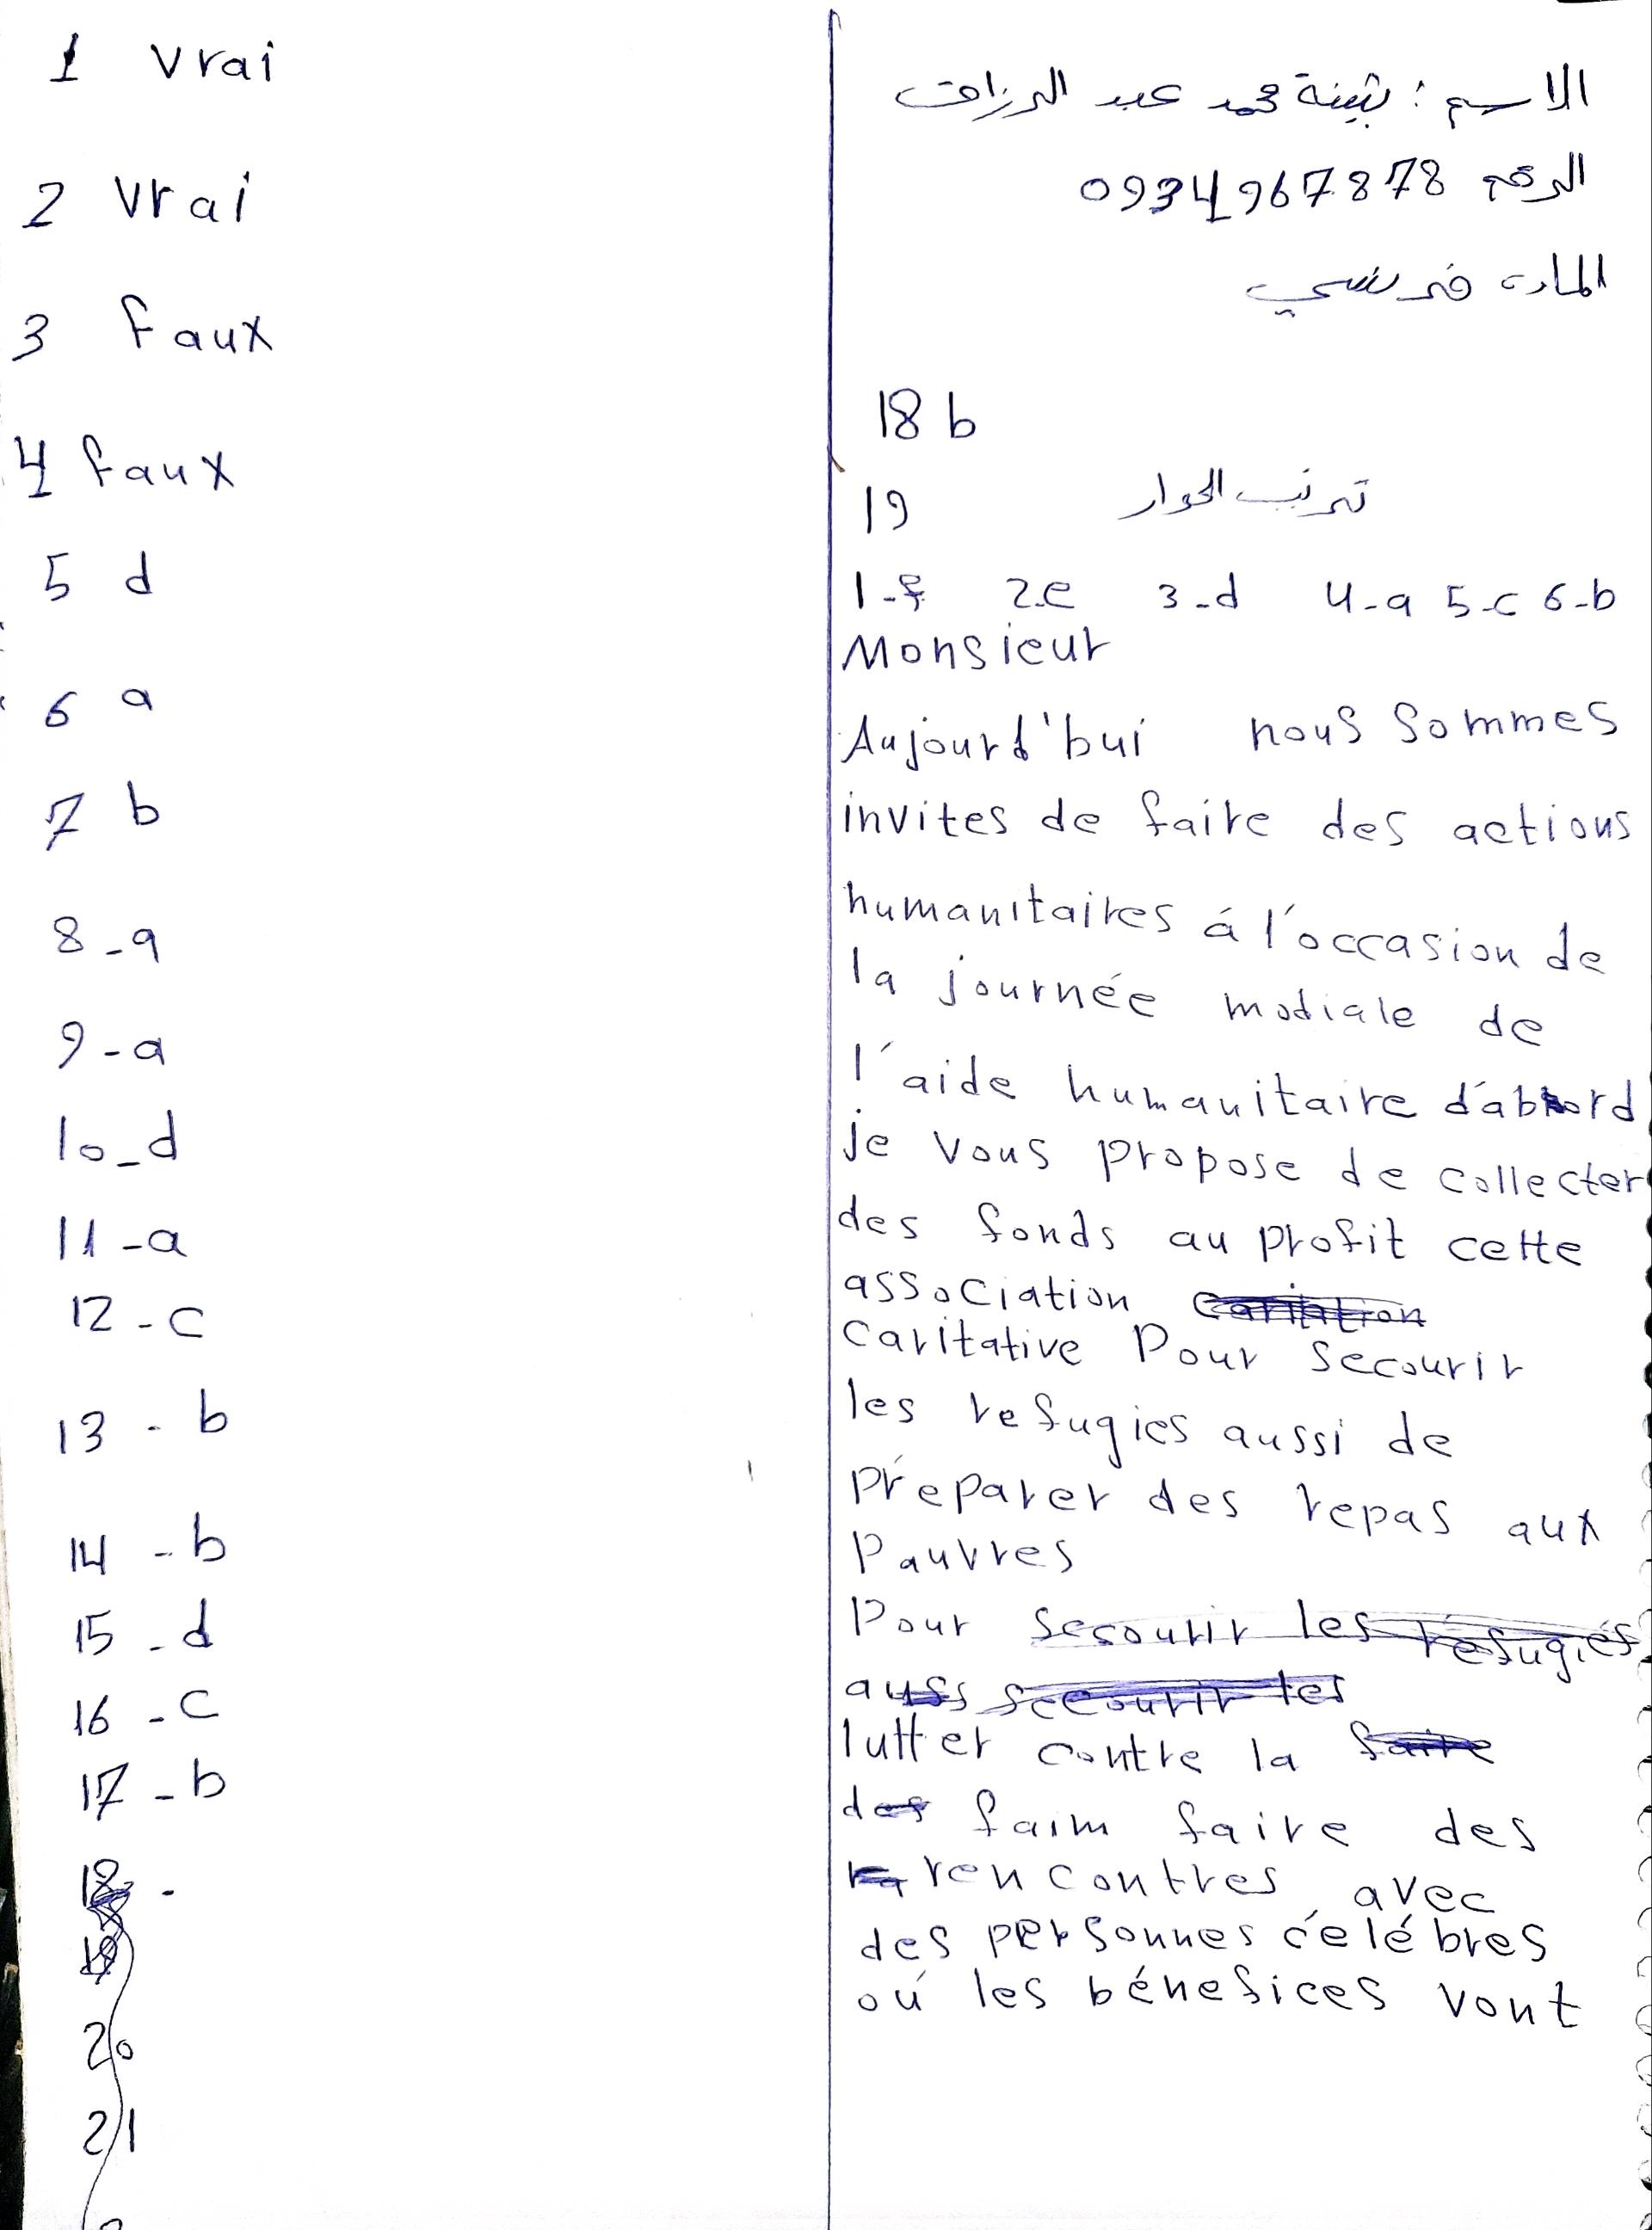 1 vrai
2 vrai
3 faux
4 faux
5 d
6 a
7 b
8 - a
9 - a
10 - d
11 - a
12 - c
13 - b
14 - b
15 - d
16 - c
17 - b
18 -
19
20
21
الاسم : بثينة محمد عبد الرزاق
الرقم 0934967878
المادة فرنسي
18 b
19 ترتيب الحوار
1-f 2-e 3-d 4-a 5-c 6-b
Monsieur
Aujourd'hui nous sommes
invites de faire des actions
humanitaires á l'occasion de
la journée modiale de
l'aide humanitaire d'abord
je vous propose de collecter
des fonds au profit cette
association
caritative pour secourir
les refugies aussi de
préparer des repas aux
pauvres
pour secourir les réfugiés
auss secourir les
lutter contre la faire
des faim faire des
rencontres avec
des personnes célébres
oú les bénefices vont